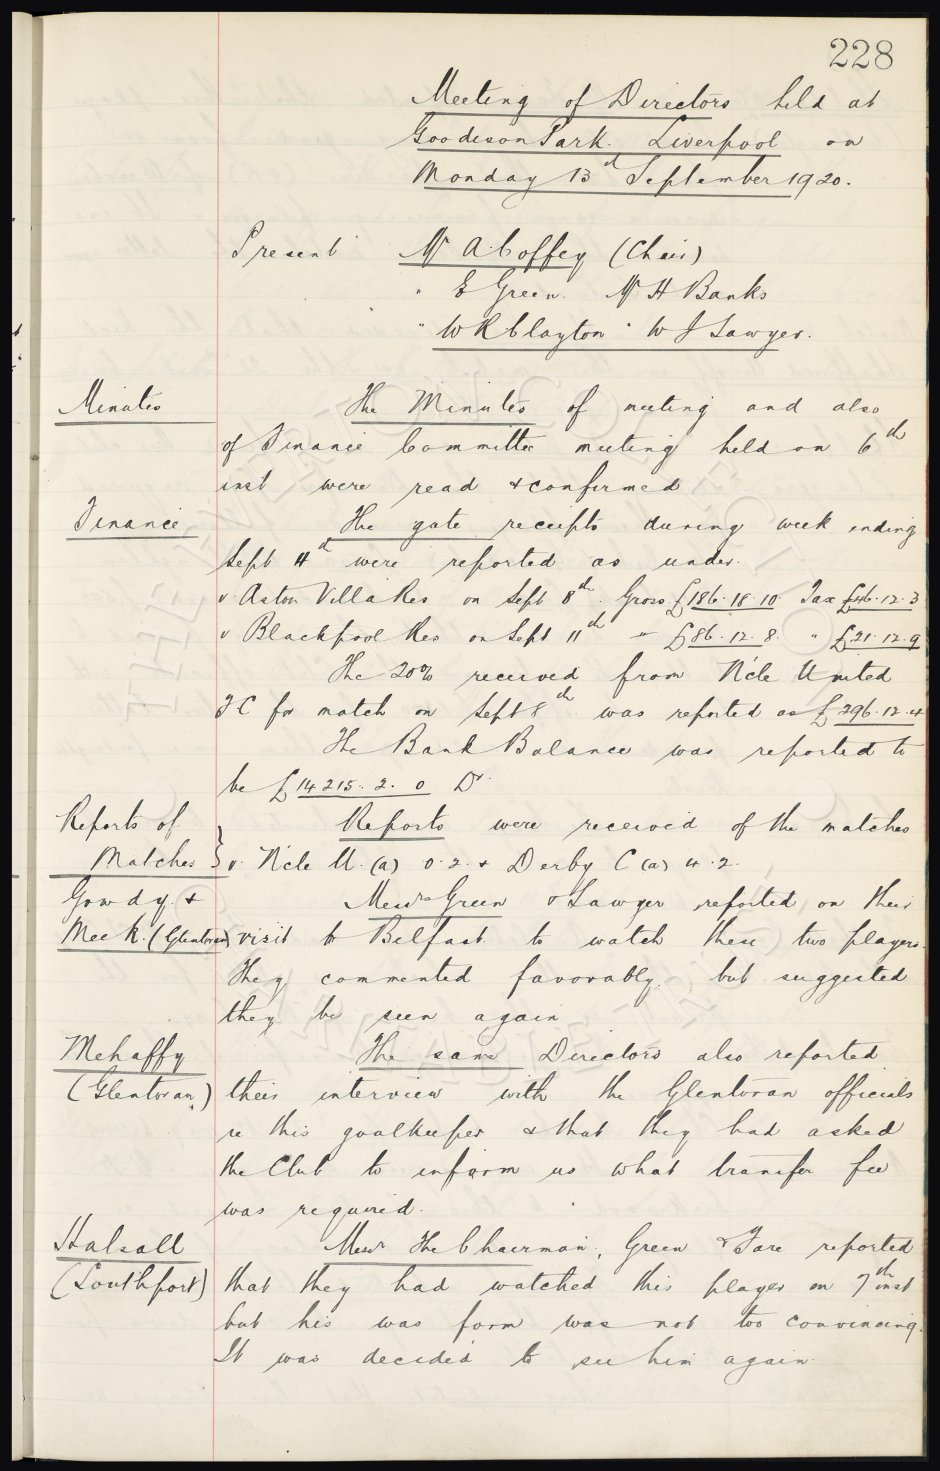 228
Meeting of Directors held at
Goodison Park. Liverpool on
Monday 13th September 1920.
Present Mr A. Coffey (Chair)
" E Green. Mr H Banks
" W R Clayton " W J Sawyer.
Minutes The Minutes of meeting and also
of Finance Committee meeting held on 6th
inst were read & confirmed
Finance The gate receipts during week ending
Sept 11th were reported as under.
v. Aston Villa Res on Sept 8th. Gross £186.18.10 Tax £46.12.3
v Blackpool Res on Sept 11th " £86.12.8. " £21.12.9
The 20% received from N'cle United
FC for match on Sept 8th was reported as £296.12.4
The Bank Balance was reported to
be £14215.2.0 Dr.
Reports of Reports were received of the matches
Matches } v. N'cle U. (a) 0.2. & Derby C (a) 4.2.
Gowdy & Messrs Green & Sawyer reported on their
Meek. (Glentoran) visit to Belfast to watch these two players.
They commented favorably. but suggested
they be seen again
Mehaffy The same Directors also reported
(Glentoran) their interview with the Glentoran officials
re this goalkeeper & that they had asked
the Club to inform us what transfer fee
was required.
Halsall Messrs The Chairman, Green & Fare reported
(Southport) that they had watched this player on 7th inst
but his was form was not too convincing.
It was decided to see him again.